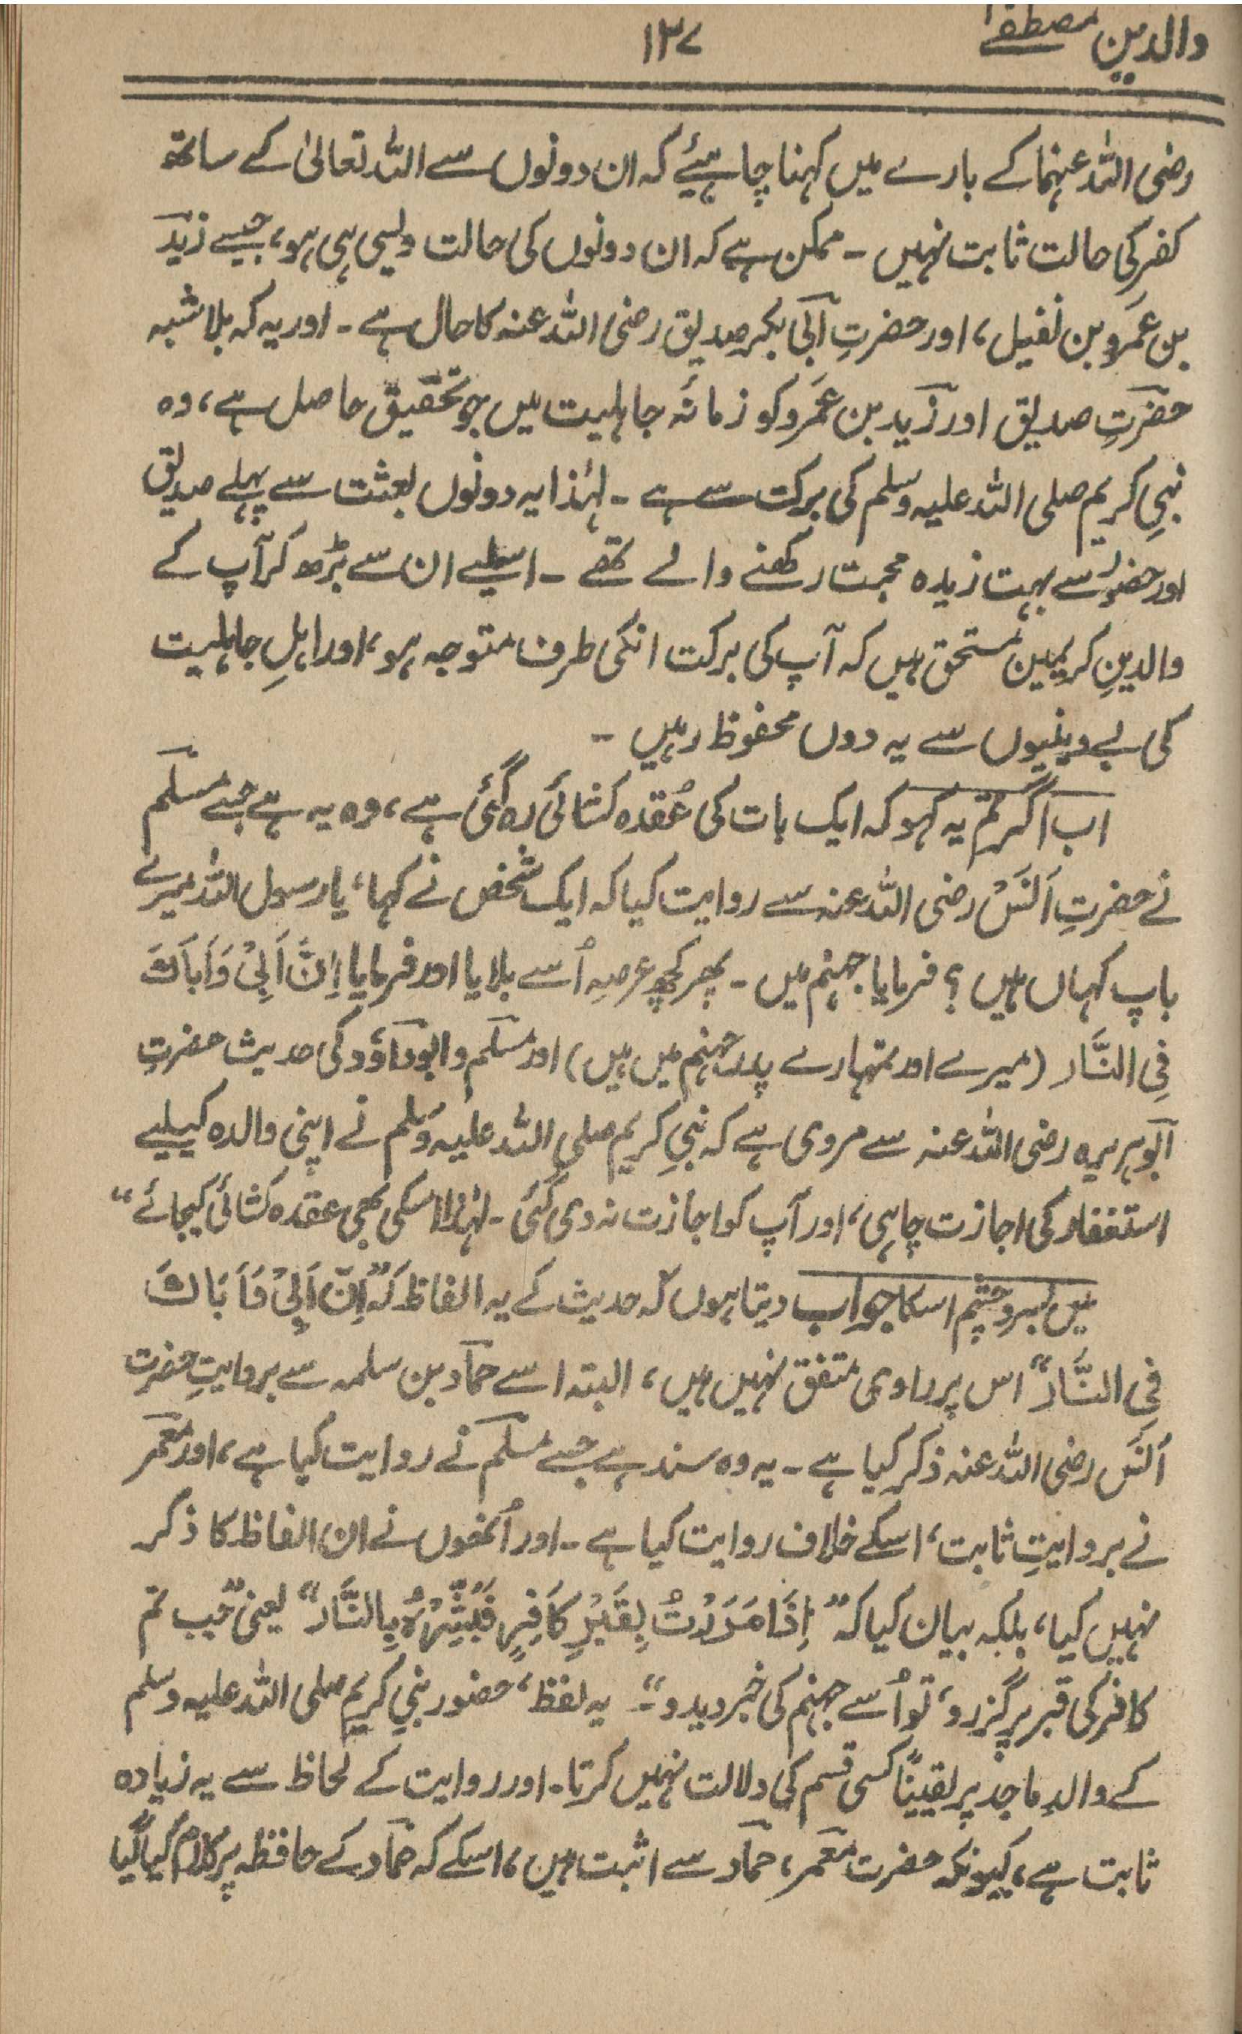 والدین مصطفےٰ
۱۳۷
رضی اللہ عنہما کے بارے میں کہنا چاہیئے کہ ان دونوں سے اللہ تعالیٰ کے ساتھ
کفر کی حالت ثابت نہیں ۔ ممکن ہے کہ ان دونوں کی حالت ویسی ہی ہو، جیسے زید
بن عمرو بن نفیل، اور حضرتِ ابی بکر صدیق رضی اللہ عنہ کا حال ہے ۔ اور یہ کہ بلا شبہ
حضرتِ صدیق اور زید بن عمرو کو زمانۂ جاہلیت میں جو تحقیق حاصل ہے، وہ
نبیِ کریم صلی اللہ علیہ وسلم کی برکت سے ہے ۔ لہٰذا یہ دونوں بعثت سے پہلے صدیق
اور حضور سے بہت زیدہ محبت رکھنے والے تھے ۔ اسلیے ان سے بڑھ کر آپ کے
والدینِ کریمین مستحق ہیں کہ آپ کی برکت انکی طرف متوجہ ہو، اور اہلِ جاہلیت
کی بے دینیوں سے یہ دوں محفوظ رہیں ۔
اب اگر تم یہ کہو کہ ایک بات کی عُقدہ کشائی رہ گئی ہے، وہ یہ ہے جسے مسلم
نے حضرتِ اَنَس رضی اللہ عنہ سے روایت کیا کہ ایک شخص نے کہا، یا رسول اللہ میرے
باپ کہاں ہیں ؟ فرمایا جہنم میں ۔ پھر کچھ عرصہ اُسے بلایا اور فرمایا اِنَّ اَبِیْ وَاَبَاکَ
فِی النَّار (میرے اور تمہارے پدر جہنم میں ہیں) اور مسلم و ابو داؤد کی حدیث حضرتِ
ابو ہریرہ رضی اللہ عنہ سے مروی ہے کہ نبیِ کریم صلی اللہ علیہ وسلم نے اپنی والدہ کیلیے
استغفار کی اجازت چاہی، اور آپ کو اجازت نہ دی گئی ۔ لہٰذا اسکی بھی عقدہ کشائی کیجائے“
میں بسر و چشم اسکا جواب دیتا ہوں کہ حدیث کے یہ الفاظ کہ ”اِنَّ اَبِیْ وَاَبَاكَ
فِی النَّار“ اس پر راوی متفق نہیں ہیں، البتہ اسے حماد بن سلمہ سے بروایتِ حضرت
اَنَس رضی اللہ عنہ ذکر کیا ہے ۔ یہ وہ سند ہے جسے مسلم نے روایت کیا ہے، اور معمر
نے بروایتِ ثابت، اسکے خلاف روایت کیا ہے ۔ اور اُنھوں نے ان الفاظ کا ذکر
نہیں کیا، بلکہ بیان کیا کہ ” اِذَا مَرَرْتُ بِقَبْرِ کَافِرٍ فَبَشِّرْہُ بِالنَّار“ یعنی ”جب تم
کافر کی قبر پر گزرو، تو اُسے جہنم کی خبر دیدو“۔ یہ لفظ، حضور نبیِ کریم صلی اللہ علیہ وسلم
کے والدِ ماجد پر یقیناً کسی قسم کی دلالت نہیں کرتا ۔ اور روایت کے لحاظ سے یہ زیادہ
ثابت ہے، کیونکہ حضرت معمر، حماد سے اثبت ہیں، اسکے کہ حماد کے حافظہ پر کلام کیا گیا